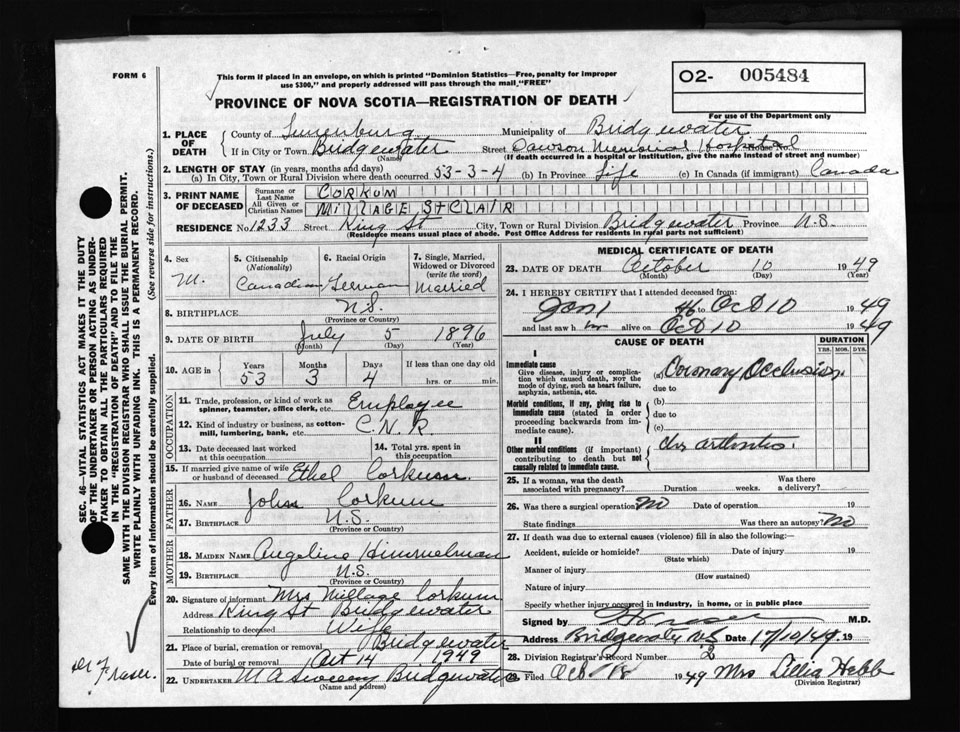 FORM 6
This form if placed in an envelope, on which is printed "Dominion Statistics—Free, penalty for improper
use $300," and properly addressed will pass through the mail "FREE"
PROVINCE OF NOVA SCOTIA—REGISTRATION OF DEATH
O2- 005484
For use of the Department only
1. PLACE OF DEATH
County of Lunenburg Municipality of Bridgewater
If in City or Town Bridgewater Street Dawson Memorial Hospital House No.
(Name) (If death occurred in a hospital or institution, give the name instead of street and number)
2. LENGTH OF STAY (in years, months and days)
(a) In City, Town or Rural Division where death occurred 53-3-4 (b) In Province Life (c) In Canada (if immigrant) Canada
3. PRINT NAME OF DECEASED
Surname or Last Name CORKUM
All Given or Christian Names MILLAGE ST CLAIR
RESIDENCE No. 1233 Street King St City, Town or Rural Division Bridgewater Province N.S.
(Residence means usual place of abode. Post Office Address for residents in rural parts not sufficient)
4. Sex M.
5. Citizenship (Nationality) Canadian
6. Racial Origin German
7. Single, Married, Widowed or Divorced (write the word) Married
8. BIRTHPLACE N.S.
(Province or Country)
9. DATE OF BIRTH July 5 1896
(Month) (Day) (Year)
10. AGE in Years 53 Months 3 Days 4 If less than one day old
hrs. or min.
OCCUPATION
11. Trade, profession, or kind of work as spinner, teamster, office clerk, etc. Employee
12. Kind of industry or business, as cotton-mill, lumbering, bank, etc. C.N.R.
13. Date deceased last worked at this occupation
14. Total yrs. spent in this occupation
15. If married give name of wife or husband of deceased Ethel Corkum
FATHER
16. NAME John Corkum
17. BIRTHPLACE N.S.
(Province or Country)
MOTHER
18. MAIDEN NAME Angeline Himmelman
19. BIRTHPLACE N.S.
(Province or Country)
20. Signature of informant Mrs Millage Corkum
Address King St Bridgewater
Relationship to deceased Wife
21. Place of burial, cremation or removal Bridgewater
Date of burial or removal Oct 14 1949
22. UNDERTAKER M A Sweeny Bridgewater
(Name and address)
MEDICAL CERTIFICATE OF DEATH
23. DATE OF DEATH October 10 1949
(Month) (Day) (Year)
24. I HEREBY CERTIFY that I attended deceased from:
Jan 1 46 to Oct 10 1949
and last saw him alive on Oct 10 1949
CAUSE OF DEATH
DURATION
YRS. MOS. DYS.
I
Immediate cause
Give disease, injury or complication which caused death, NOT the mode of dying, such as heart failure, asphyxia, asthenia, etc.
(a) Coronary Occlusion.
due to
Morbid conditions, if any, giving rise to immediate cause (stated in order proceeding backwards from immediate cause).
(b)
due to
(c)
II
Other morbid conditions (if important) contributing to death but not causally related to immediate cause.
arthritis.
25. If a woman, was the death associated with pregnancy? Duration weeks. Was there a delivery?
26. Was there a surgical operation? No Date of operation 19
State findings Was there an autopsy? No
27. If death was due to external causes (violence) fill in also the following:—
Accident, suicide or homicide? Date of injury 19
(State which)
Manner of injury
(How sustained)
Nature of injury
Specify whether injury occurred in industry, in home, or in public place
Signed by Fraser M.D.
Address Bridgewater NS Date 17/10/49 19
28. Division Registrar's Record Number 2
29. Filed Oct 18 1949 Mrs Lillia Hebb
(Division Registrar)
SEC. 46—VITAL STATISTICS ACT MAKES IT THE DUTY
OF THE UNDERTAKER OR PERSON ACTING AS UNDER-
TAKER TO OBTAIN ALL THE PARTICULARS REQUIRED
IN THE "REGISTRATION OF DEATH" AND TO FILE THE
SAME WITH THE DIVISION REGISTRAR WHO SHALL ISSUE THE BURIAL PERMIT.
WRITE PLAINLY WITH UNFADING INK. THIS IS A PERMANENT RECORD.
Every item of information should be carefully supplied. (See reverse side for instructions.)
Dr Fraser.